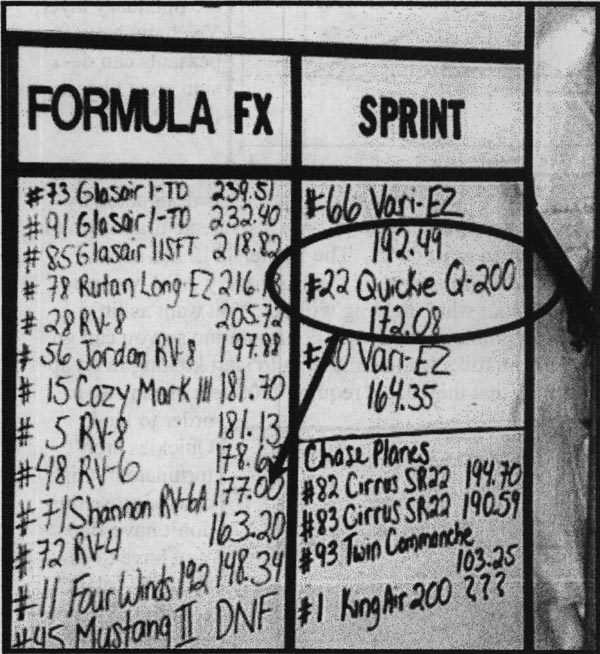 FORMULA FX
#73 Glasair I-TD 239.51
#91 Glasair I-TD 232.40
#85 Glasair IISFT 218.82
#78 Rutan Long-EZ 216.
#28 RV-8 205.72
#56 Jordan RV-8 197.88
#15 Cozy Mark III 181.70
#5 RV-8 181.13
#48 RV-6 178.6
#71 Shannon RV-6A 177.00
#72 RV-4 163.20
#11 Four Winds 192 148.34
#45 Mustang II DNF
SPRINT
#66 Vari-EZ
192.49
#22 Quickie Q-200
172.08
Vari-EZ
164.35
Chase Planes
#82 Cirrus SR22 194.70
#83 Cirrus SR22 190.59
#93 Twin Commanche
103.25
#1 King Air 200 ???